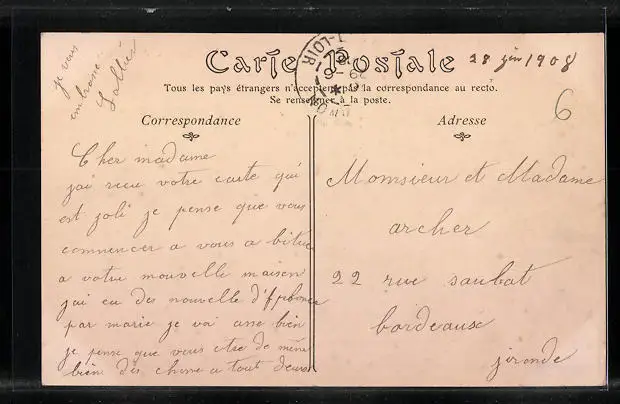 je vous
embrasse
Carte Postale
28 juin 1908
Tous les pays étrangers n'acceptent pas la correspondance au recto.
Se renseigner à la poste.
6
Correspondance
Cher madame
jai recu votre carte qui
est joli je pense que vous
commencer a vous a bitue
a votre mouvelle maison
jai eu des nouvelle
par marie je vai asse bien
je pense que vous etse de même
bien des chose a tout deux
Adresse
Momsieur et Madame
archer
22 rue saubat
bordeause
jironde